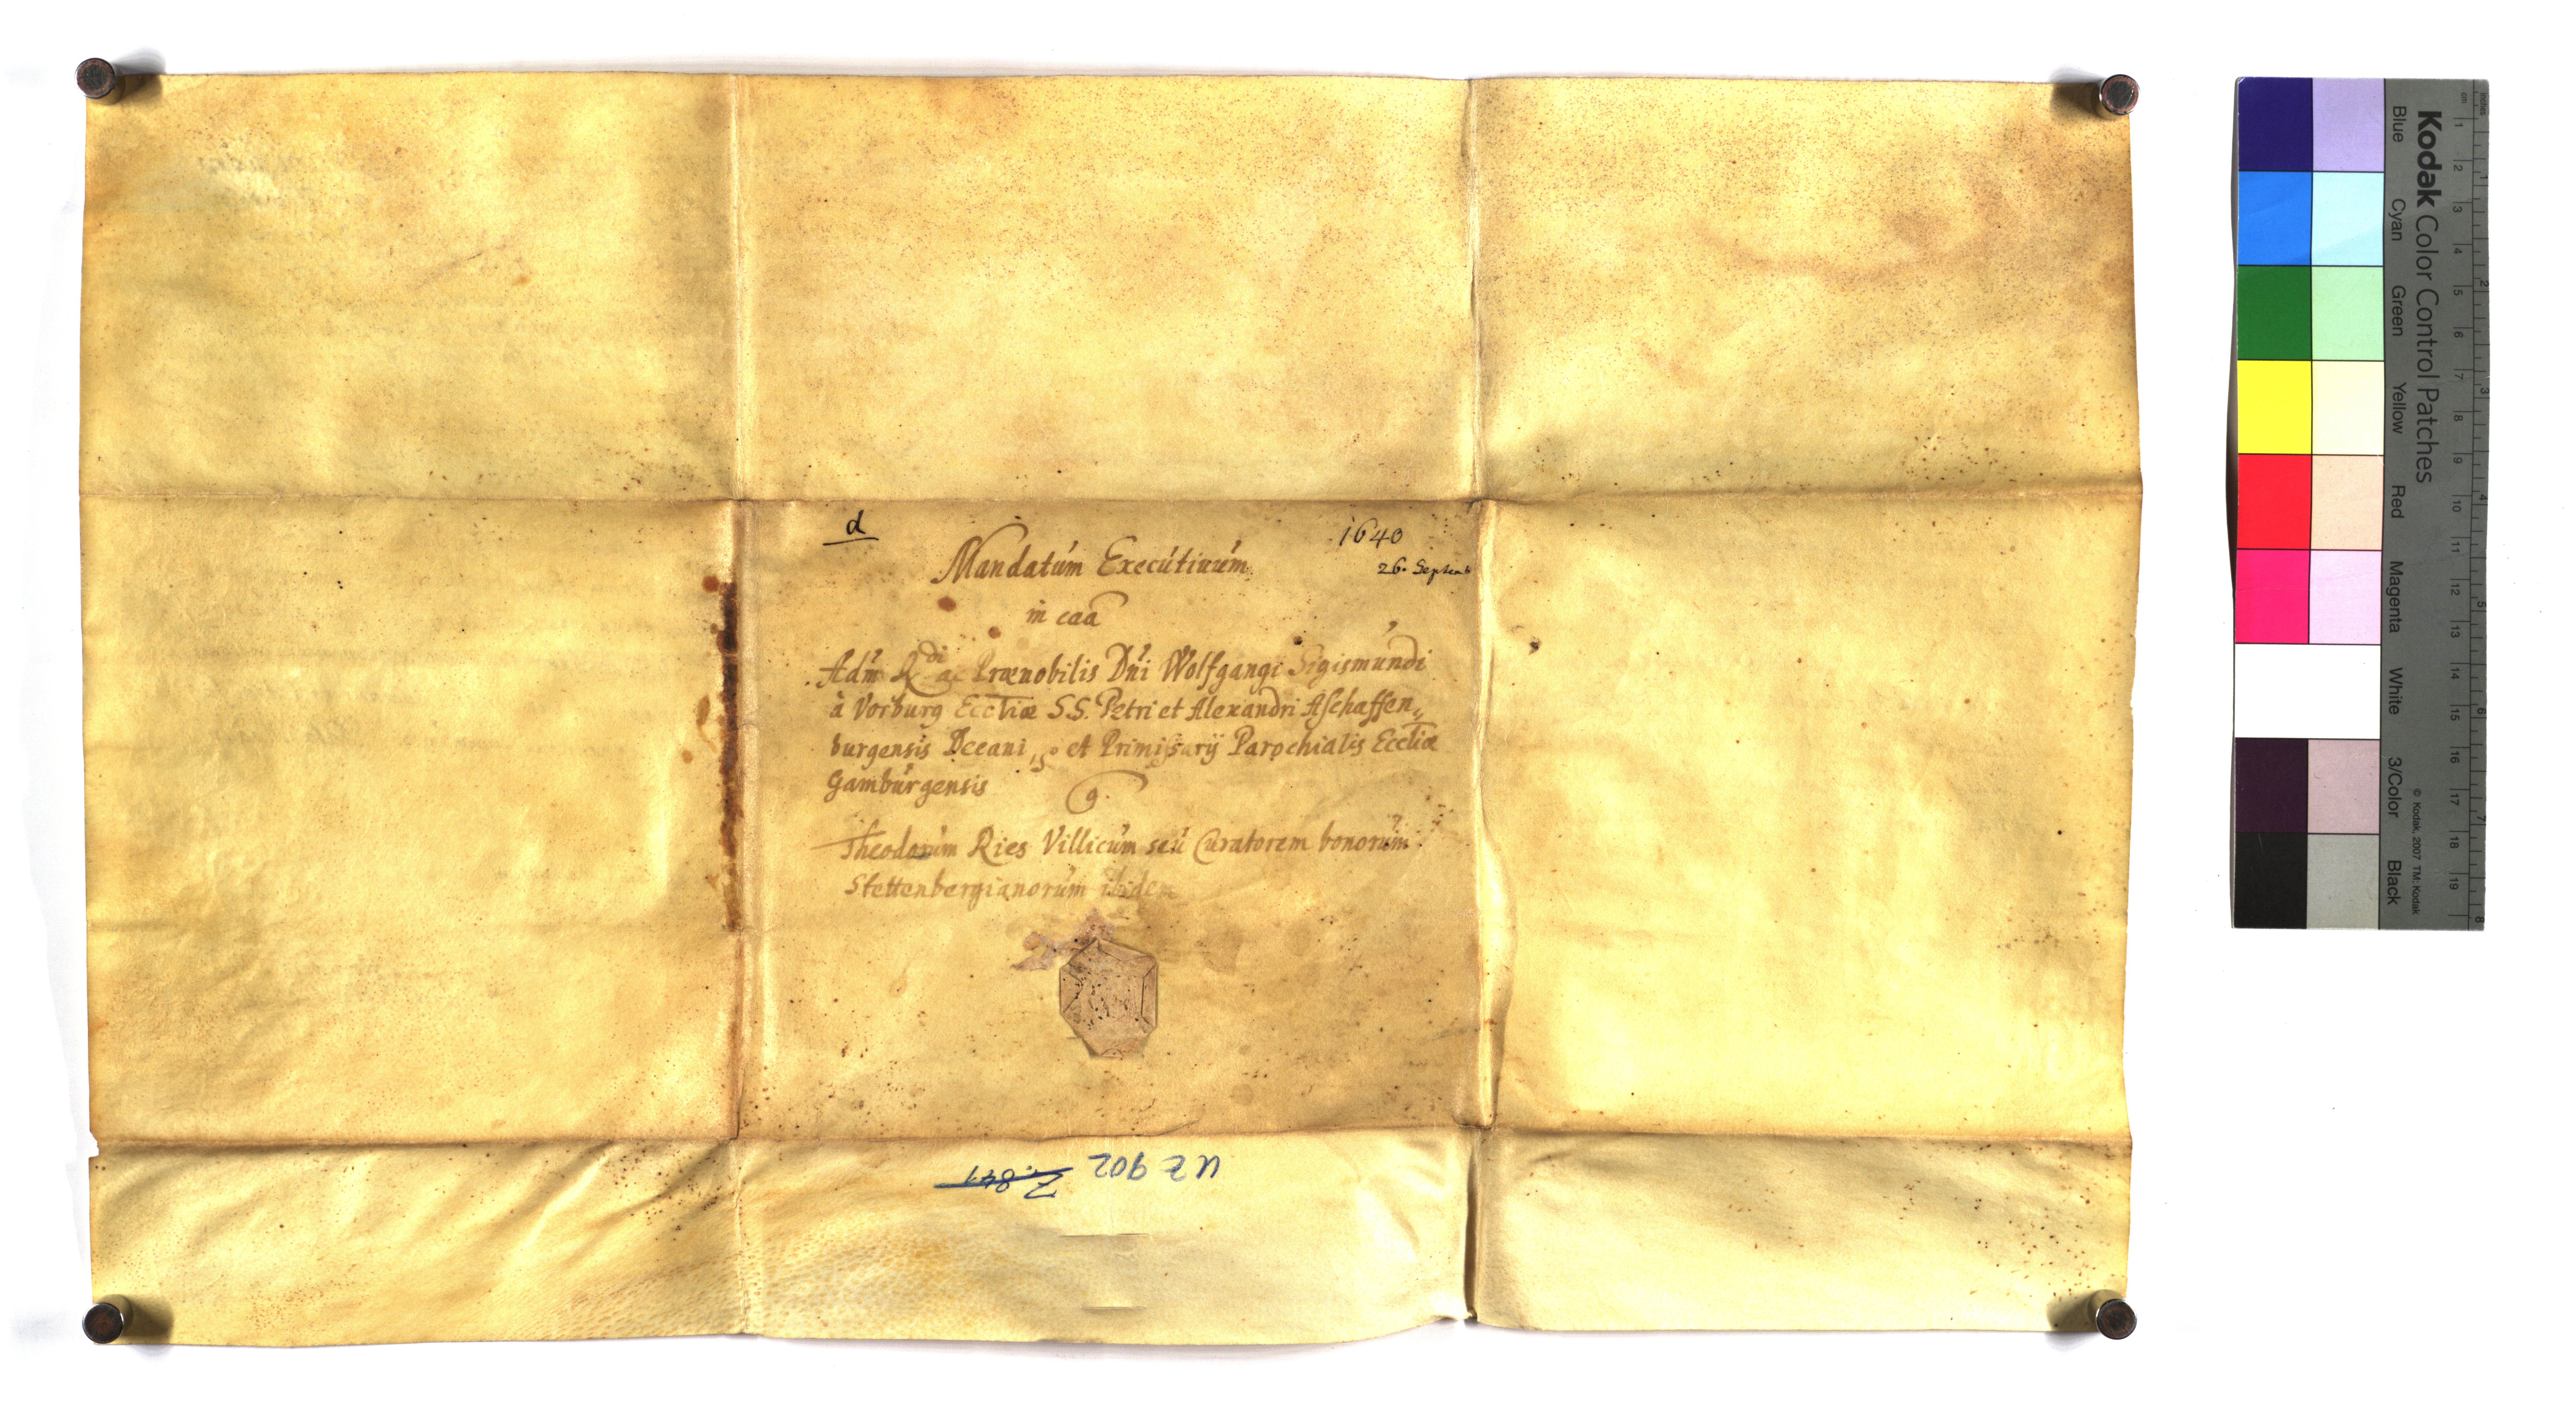 d
1640
26. Septemb
Mandatum Executiuum
in caã
Adm Rdi ac Prænobilis Dñi Wolfgangi Sigismundi
à Vorburg Eccliæ S.S. Petri et Alexandri Aschaffen„
burgensis Deeani, et Primissarij Parochialis Eccliæ
Gamburgensis
Theodorum Ries Villicum seu Curatorem bonorum
Stettenbergianorum ibidem
UZ 902 Z. 841
Kodak Color Control Patches
Blue Cyan Green Yellow Red Magenta White 3/Color Black
© Kodak, 2007 TM: Kodak
inches 1 2 3 4 5 6 7 8
cm 1 2 3 4 5 6 7 8 9 10 11 12 13 14 15 16 17 18 19